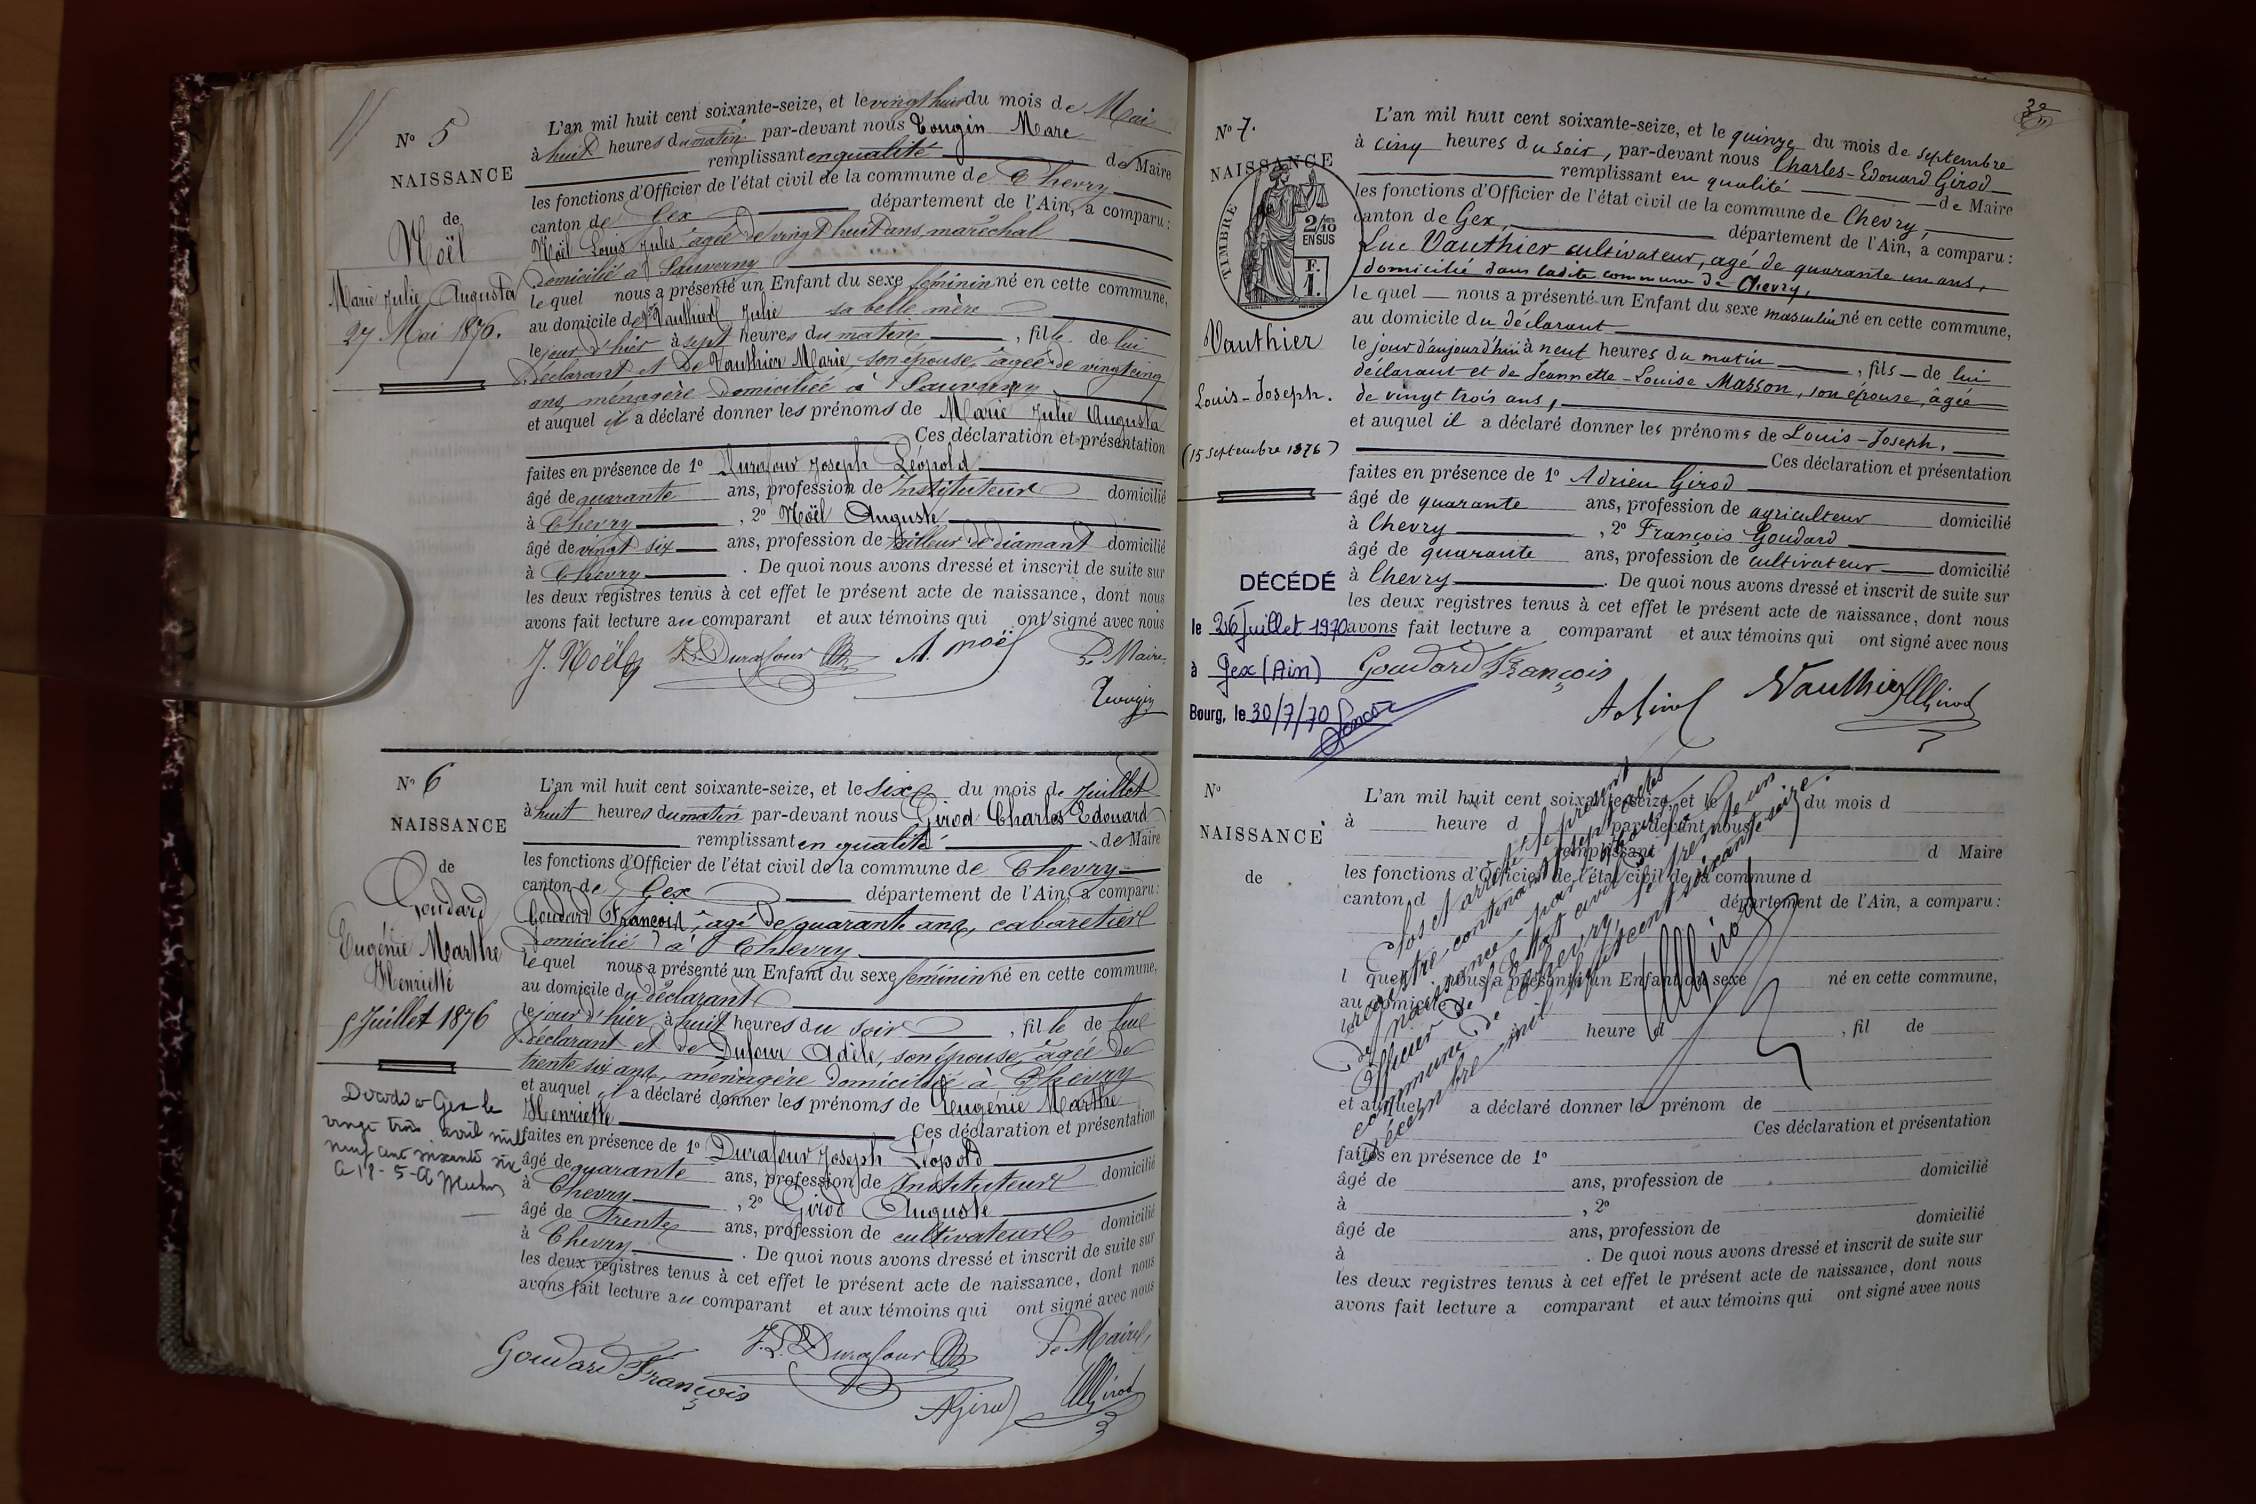 N° 5
NAISSANCE
de
Noël
Marie Julie Augusta
27 Mai 1876.
L'an mil huit cent soixante-seize, et le vingt huit du mois de Mai
à huit heures du matin par-devant nous Tougin Marc
remplissant en qualité de Maire
les fonctions d'Officier de l'état civil de la commune de Chevry
canton de Gex département de l'Ain, a comparu :
Noël Louis Jules âgé de vingt huit ans, maréchal
domicilié à Sauverny
le quel nous a présenté un Enfant du sexe féminin né en cette commune,
au domicile de Vauthier Julie sa belle mère
le jour d'hier à sept heures du matin , fille de lui
déclarant et de Vauthier Marie, son épouse, âgée de vingt cinq
ans, ménagère domiciliée à Sauverny
et auquel il a déclaré donner les prénoms de Marie Julie Augusta
Ces déclaration et présentation
faites en présence de 1° Durafour Joseph Léopold
âgé de quarante ans, profession de Instituteur domicilié
à Chevry , 2° Noël Auguste
âgé de vingt six ans, profession de tailleur de diamant domicilié
à Chevry . De quoi nous avons dressé et inscrit de suite sur
les deux registres tenus à cet effet le présent acte de naissance, dont nous
avons fait lecture au comparant et aux témoins qui ont signé avec nous
J. Noël J. L. Durafour A. Noël Le Maire,
Tougin
N° 6
NAISSANCE
de
Goudard
Eugénie Marthe
Henriette
5 Juillet 1876
Décédée à Gex le
vingt trois avril mil
neuf cent soixante six
L'an mil huit cent soixante-seize, et le six du mois de Juillet
à huit heures du matin par-devant nous Girod Charles Edouard
remplissant en qualité de Maire
les fonctions d'Officier de l'état civil de la commune de Chevry
canton de Gex département de l'Ain, a comparu :
Goudard François, âgé de quarante ans, cabaretier
domicilié à Chevry
le quel nous a présenté un Enfant du sexe féminin né en cette commune,
au domicile du déclarant
le jour d'hier à huit heures du soir , fille de lui
déclarant et de Dufour Adèle, son épouse, âgée de
trente six ans, ménagère domiciliée à Chevry
et auquel il a déclaré donner les prénoms de Eugénie Marthe
Henriette
Ces déclaration et présentation
faites en présence de 1° Durafour Joseph Léopold
âgé de quarante ans, profession de Instituteur domicilié
à Chevry , 2° Girod Auguste
âgé de Trente ans, profession de cultivateur domicilié
à Chevry . De quoi nous avons dressé et inscrit de suite sur
les deux registres tenus à cet effet le présent acte de naissance, dont nous
avons fait lecture au comparant et aux témoins qui ont signé avec nous
Goudard François J. L. Durafour Le Maire,
A Girod Girod
N° 7.
NAISSANCE
TIMBRE
2/10
EN SUS
F.
1.
Vauthier
Louis-Joseph.
(15 septembre 1876)
DÉCÉDÉ
le 26 Juillet 1970
à Gex (Ain)
Bourg, le 30/7/70
L'an mil huit cent soixante-seize, et le quinze du mois de septembre
à cinq heures du soir, par-devant nous Charles-Edouard Girod
remplissant en qualité de Maire
les fonctions d'Officier de l'état civil de la commune de Chevry,
canton de Gex, département de l'Ain, a comparu :
Luc Vauthier cultivateur, agé de quarante un ans,
domicilié dans ladite commune de Chevry,
le quel nous a présenté un Enfant du sexe masculin né en cette commune,
au domicile du déclarant
le jour d'aujourd'hui à neuf heures du matin , fils de lui
déclarant et de Jeannette-Louise Masson, son épouse, âgée
de vingt trois ans,
et auquel il a déclaré donner les prénoms de Louis-Joseph.
Ces déclaration et présentation
faites en présence de 1° Adrien Girod
âgé de quarante ans, profession de agriculteur domicilié
à Chevry , 2° François Goudard
âgé de quarante ans, profession de cultivateur domicilié
à Chevry . De quoi nous avons dressé et inscrit de suite sur
les deux registres tenus à cet effet le présent acte de naissance, dont nous
avons fait lecture a comparant et aux témoins qui ont signé avec nous
Goudard François
A Girod Vauthier Girod
N°
NAISSANCE
de
L'an mil huit cent soixante-seize, et le du mois d
à heure d par-devant nous
remplissant d Maire
les fonctions d'Officier de l'état civil de la commune d
canton d département de l'Ain, a comparu :
l quel nous a présenté un Enfant du sexe né en cette commune,
au domicile de
le heure d , fil de
et auquel a déclaré donner le prénom de
Ces déclaration et présentation
faites en présence de 1°
âgé de ans, profession de domicilié
à , 2°
âgé de ans, profession de domicilié
à . De quoi nous avons dressé et inscrit de suite sur
les deux registres tenus à cet effet le présent acte de naissance, dont nous
avons fait lecture a comparant et aux témoins qui ont signé avec nous
Clos et arrêté le présent
registre contenant sept actes
de naissance par nous
Officier de l'Etat civil de la
commune de Chevry, le trente un
décembre mil huit cent soixante seize.
Girod